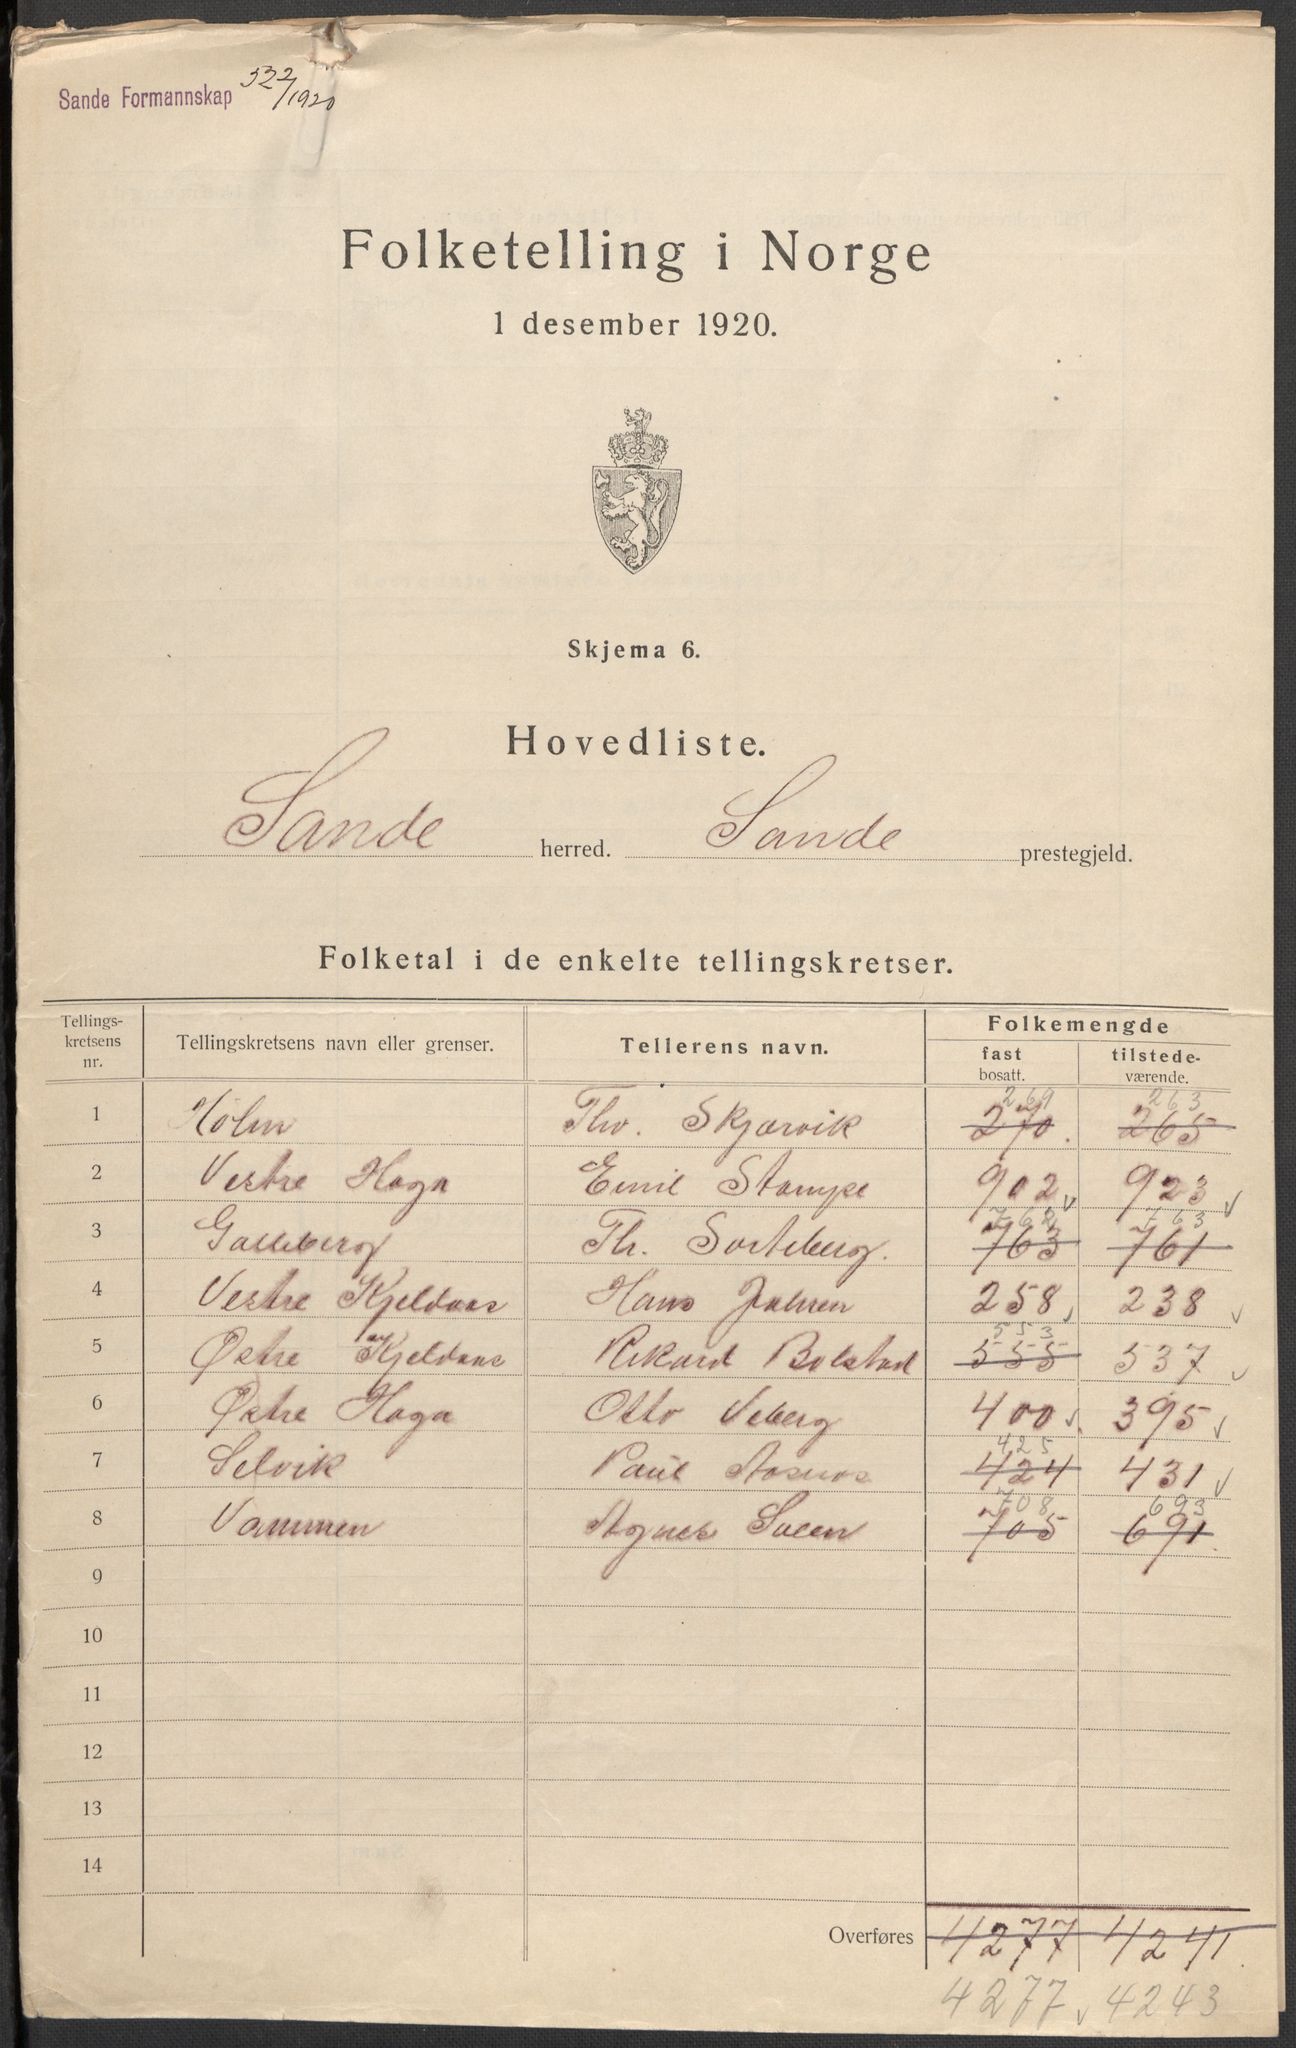 Sande Formannskap 532/1920
Folketelling i Norge
1 desember 1920.
Skjema 6.
Hovedliste.
Sande herred. Sande prestegjeld.
Folketal i de enkelte tellingskretser.
Tellings-
kretsens
nr.
Tellingskretsens navn eller grenser.
Tellerens navn.
Folkemengde
fast
bosatt.
tilstede-
værende.
269 263
1 Holm Thv. Skjærvik 270. 265
2 Vestre Haga Emil Stampe 902 923
762 763
3 Galleberg Th. Sorteberg. 763 761
4 Vestre Kjeldaas Hans 258 238
553
5 Østre Kjeldaas Rikard Bolstad 555 537
6 Østre Haga Otto 400 395
425
7 Selvik Paul 424 431
708 693
8 Vammen Agnes 705 691.
9
10
11
12
13
14
Overføres 4277 4241.
4277 4243